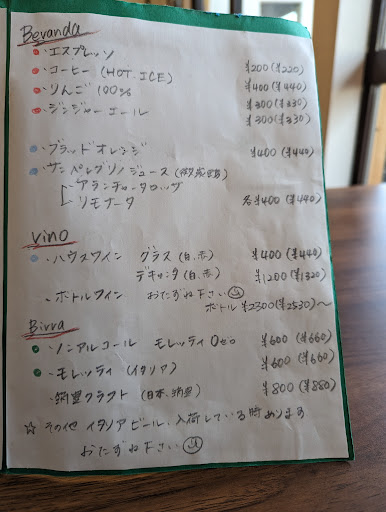 Bevanda
・エスプレッソ ¥200(¥220)
・コーヒー (HOT.ICE) ¥400(¥440)
・りんご 100% ¥300(¥330)
・ジンジャーエール ¥300(¥330)
・ブラッドオレンジ ¥400(¥440)
・サンペレグリノジュース (微炭酸)
アランチャータロッサ
リモナータ 各¥400(¥440)
Vino
・ハウスワイン グラス (白.赤) ¥400(¥440)
デキャンタ (白.赤) ¥1200(¥1320)
・ボトルワイン おたずね下さい
ボトル ¥2300(¥2530)〜
Birra
・ノンアルコール モレッティ 0ゼロ ¥600(¥660)
・モレッティ (イタリア) ¥600(¥660)
・クラフト (日本.) ¥800(¥880)
☆ その他 イタリアビール、入荷している時あります
おたずね下さい